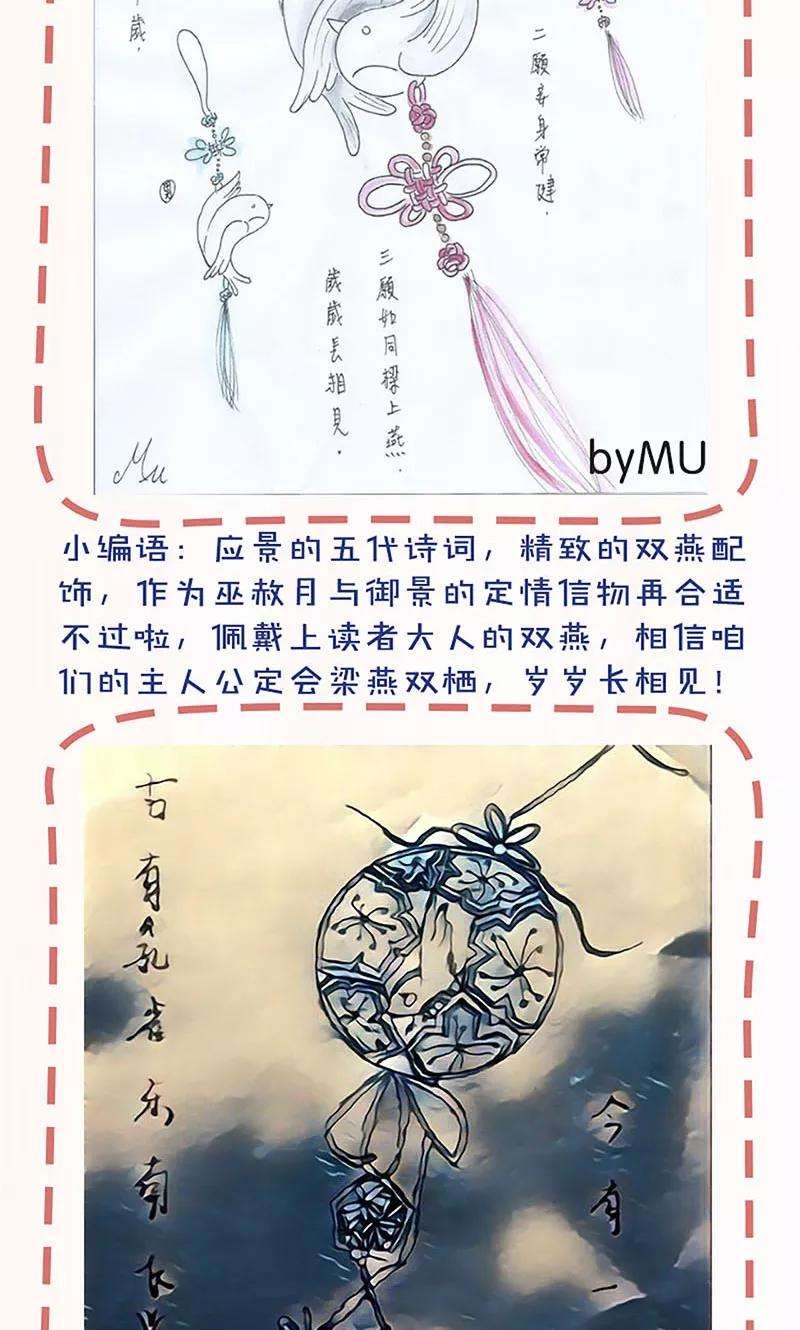 歲，
二願妾身常健，
三願如同樑上燕，
歲歲長相見。
Mu
byMU
小编语：应景的五代诗词，精致的双燕配
饰，作为巫赦月与御景的定情信物再合适
不过啦，佩戴上读者大人的双燕，相信咱
们的主人公定会梁燕双栖，岁岁长相见！
古有孔雀东南
今有一